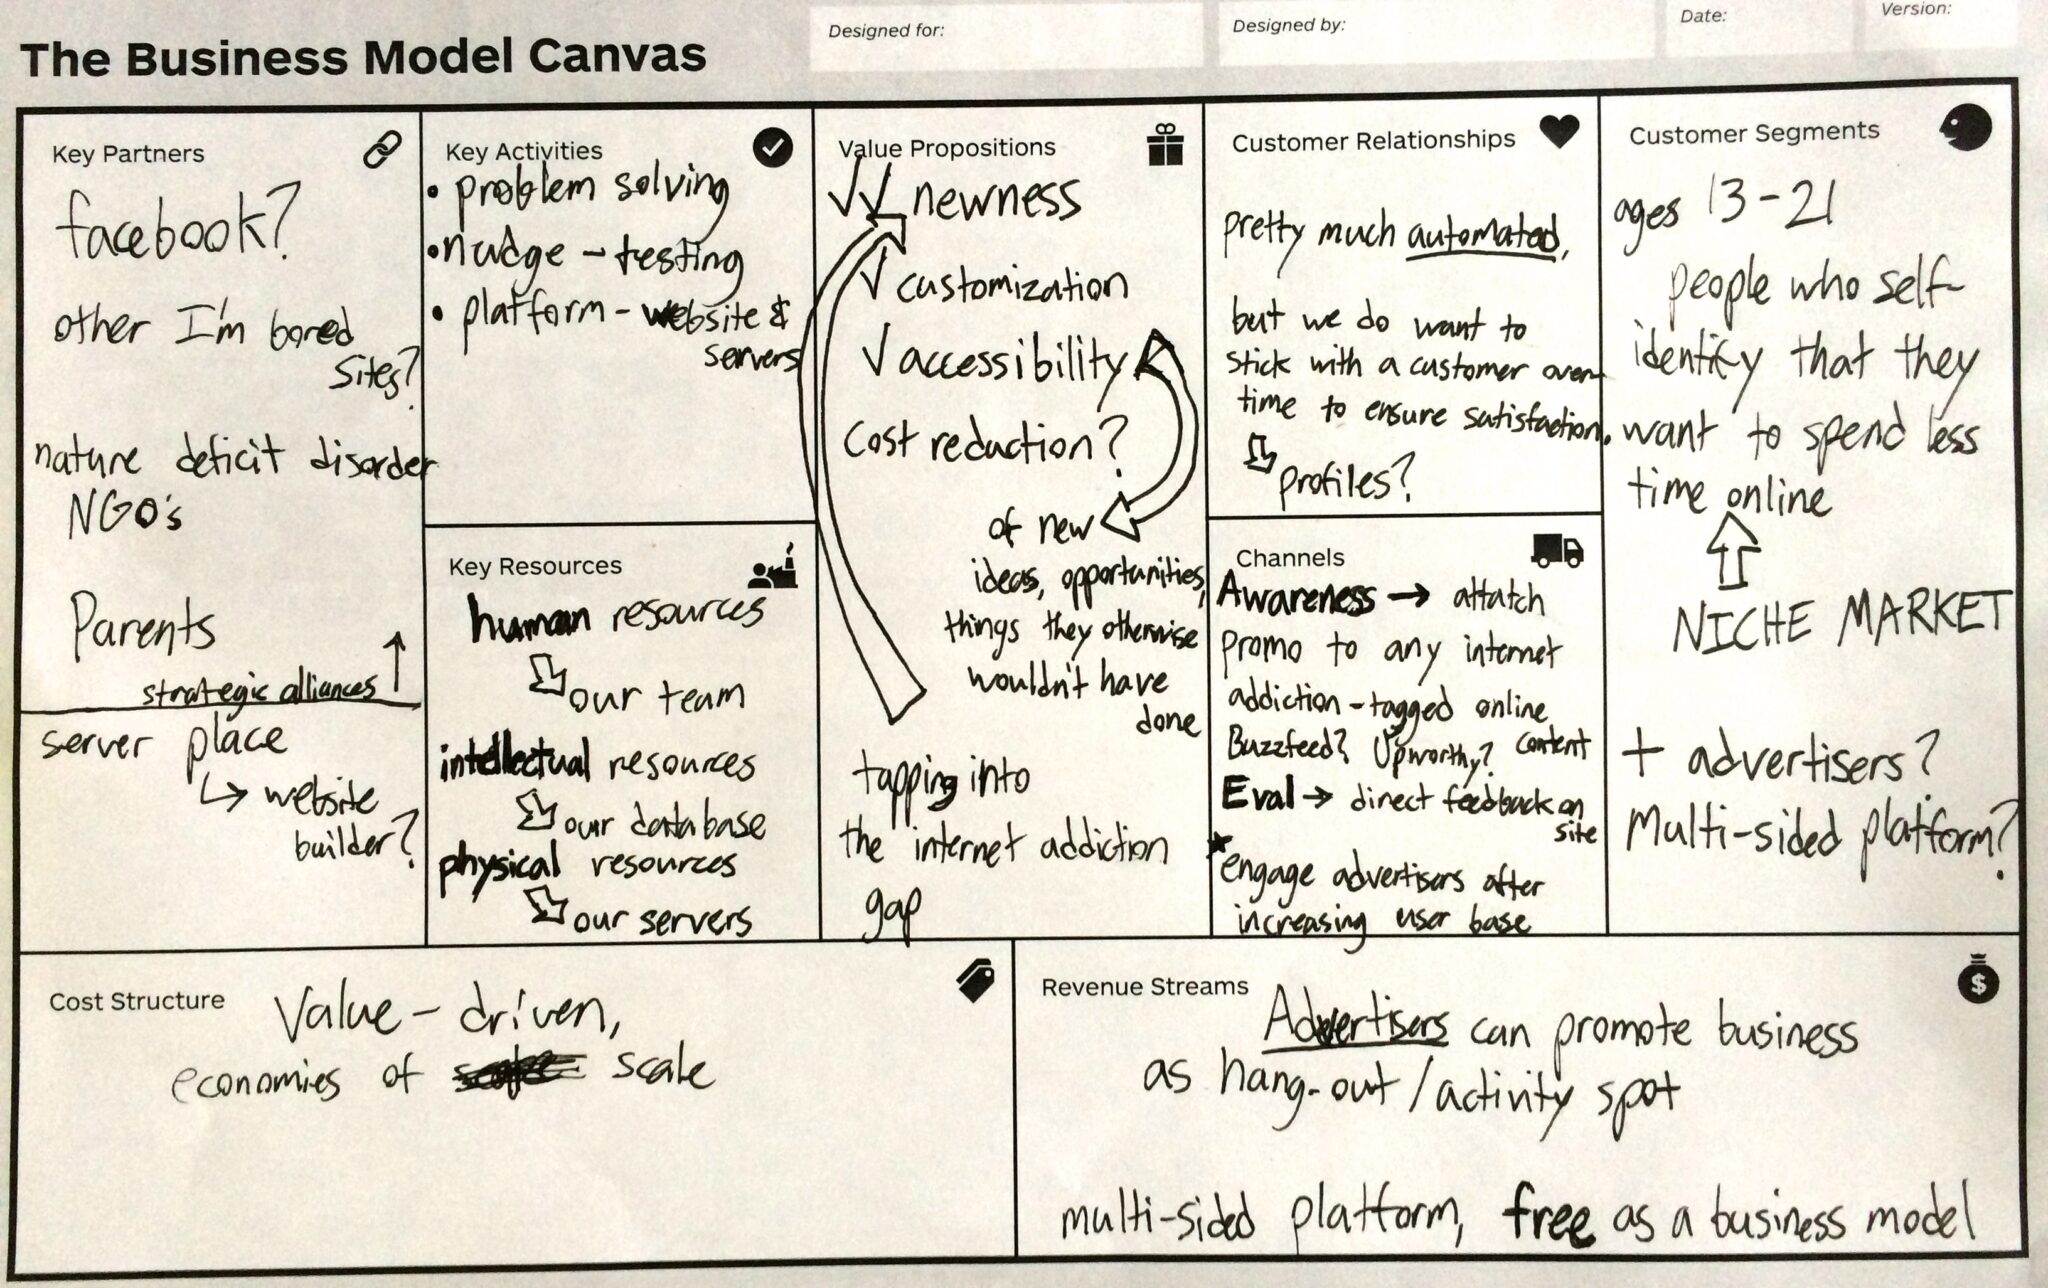 The Business Model Canvas
Designed for:
Designed by:
Date:
Version:
Key Partners
facebook?
other I'm bored
sites?
nature deficit disorder
NGO's
Parents
strategic alliances
server place
website
builder?
Key Activities
• problem solving
• nudge - testing
• platform - website &
servers
Key Resources
human resources
our team
intellectual resources
our database
physical resources
our servers
Value Propositions
√√ newness
√ customization
√ accessibility
cost reduction?
of new
ideas, opportunities,
things they otherwise
wouldn't have
done
tapping into
the internet addiction
gap
Customer Relationships
pretty much automated,
but we do want to
stick with a customer over-
time to ensure satisfaction.
profiles?
Channels
Awareness → attatch
promo to any internet
addiction - tagged online
Buzzfeed? Upworthy? content
Eval → direct feedback on
site
* engage advertisers after
increasing user base
Customer Segments
ages 13-21
people who self-
identify that they
want to spend less
time online
NICHE MARKET
+ advertisers?
Multi-sided platform?
Cost Structure
Value - driven,
economies of scale
Revenue Streams
Advertisers can promote business
as hang-out / activity spot
multi-sided platform, free as a business model